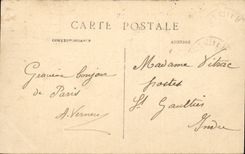 CARTE POSTALE
CORRESPONDANCE
ADRESSE
Gracieux bonjour
de Paris
A. Verneu
Madame Vitrac
postes
St Gaultier
Indre